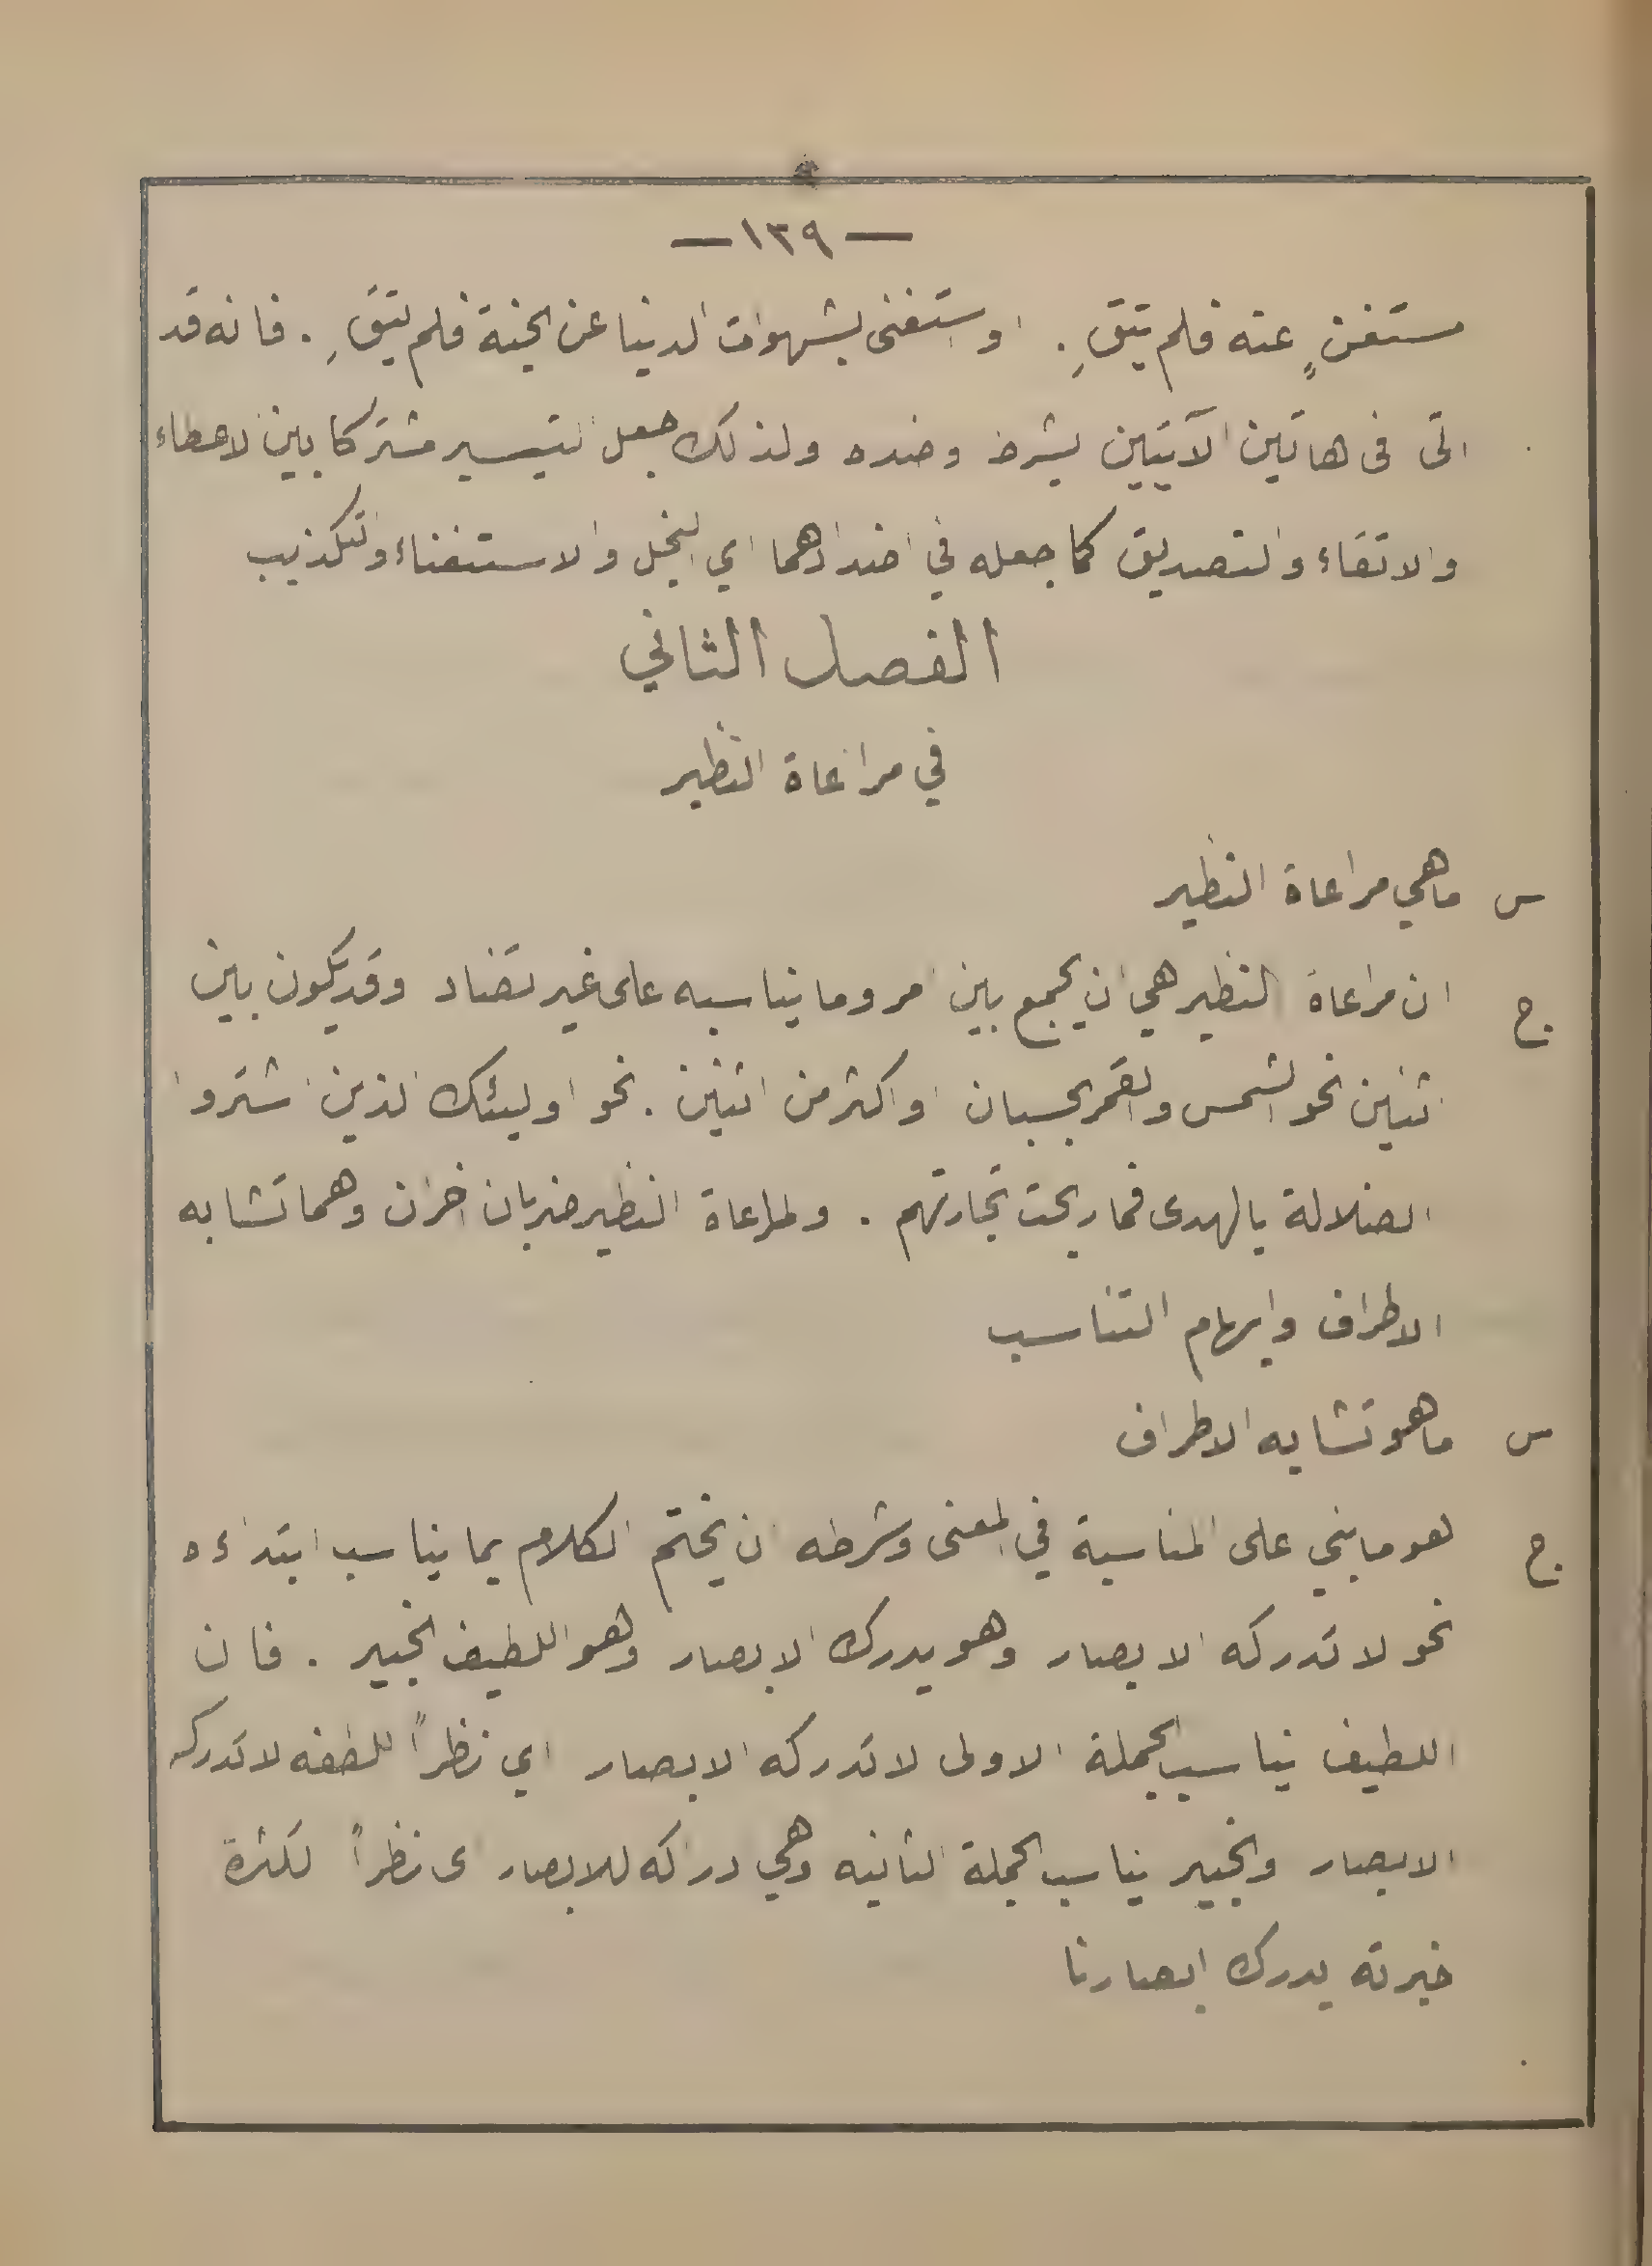 — ١٣٩ —
مستغنٍ عنه فلم يتقِ . او استغنى بشهوات الدنيا عن الجنة فلم يتقِ . فانه قد
اتى فى هاتين الآيتين بشرط وضده ولذلك جعل التيسير مشتركا بين الاعطاء
والاتقاء والتصديق كما جعله في اضدادهما اي البخل والاستغناء والتكذيب
الفصل الثاني
في مراعاة النظير
س ماهي مراعاة النظير
ج ان مراعاة النظير هي ان يجمع بين امر وما يناسبه على غير تضاد وقد يكون بين
اثنين نحو الشمس والقمر بحسبان او اكثر من اثنين . نحو اوليئك الذين اشتروا
الضلالة بالهدى فما ربحت تجارتهم . ولمراعاة النظير ضربان اخران وهما تشابه
الاطراف وايهام التناسب
س ماهو تشابه الاطراف
ج هو ما بني على المناسبة في المعنى وشرطه ان يختم الكلام بما يناسب ابتداءه
نحو لا تدركه الابصار وهو يدرك الابصار وهو اللطيف الخبير . فان
اللطيف يناسب الجملة الاولى لا تدركه الابصار اي نظراً للطفه لا تدركه
الابصار والخبير يناسب الجملة الثانيه وهي دراكه للابصار اى نظراً لكثرة
خبرته يدرك ابصارنا